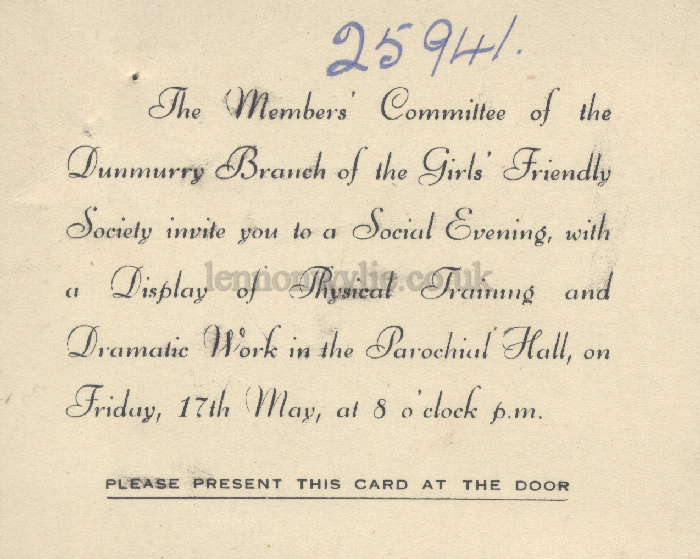 25941.
The Members' Committee of the
Dunmurry Branch of the Girls' Friendly
Society invite you to a Social Evening, with
a Display of Physical Training and
lennonwylie.co.uk
Dramatic Work in the Parochial Hall, on
Friday, 17th May, at 8 o'clock p.m.
PLEASE PRESENT THIS CARD AT THE DOOR